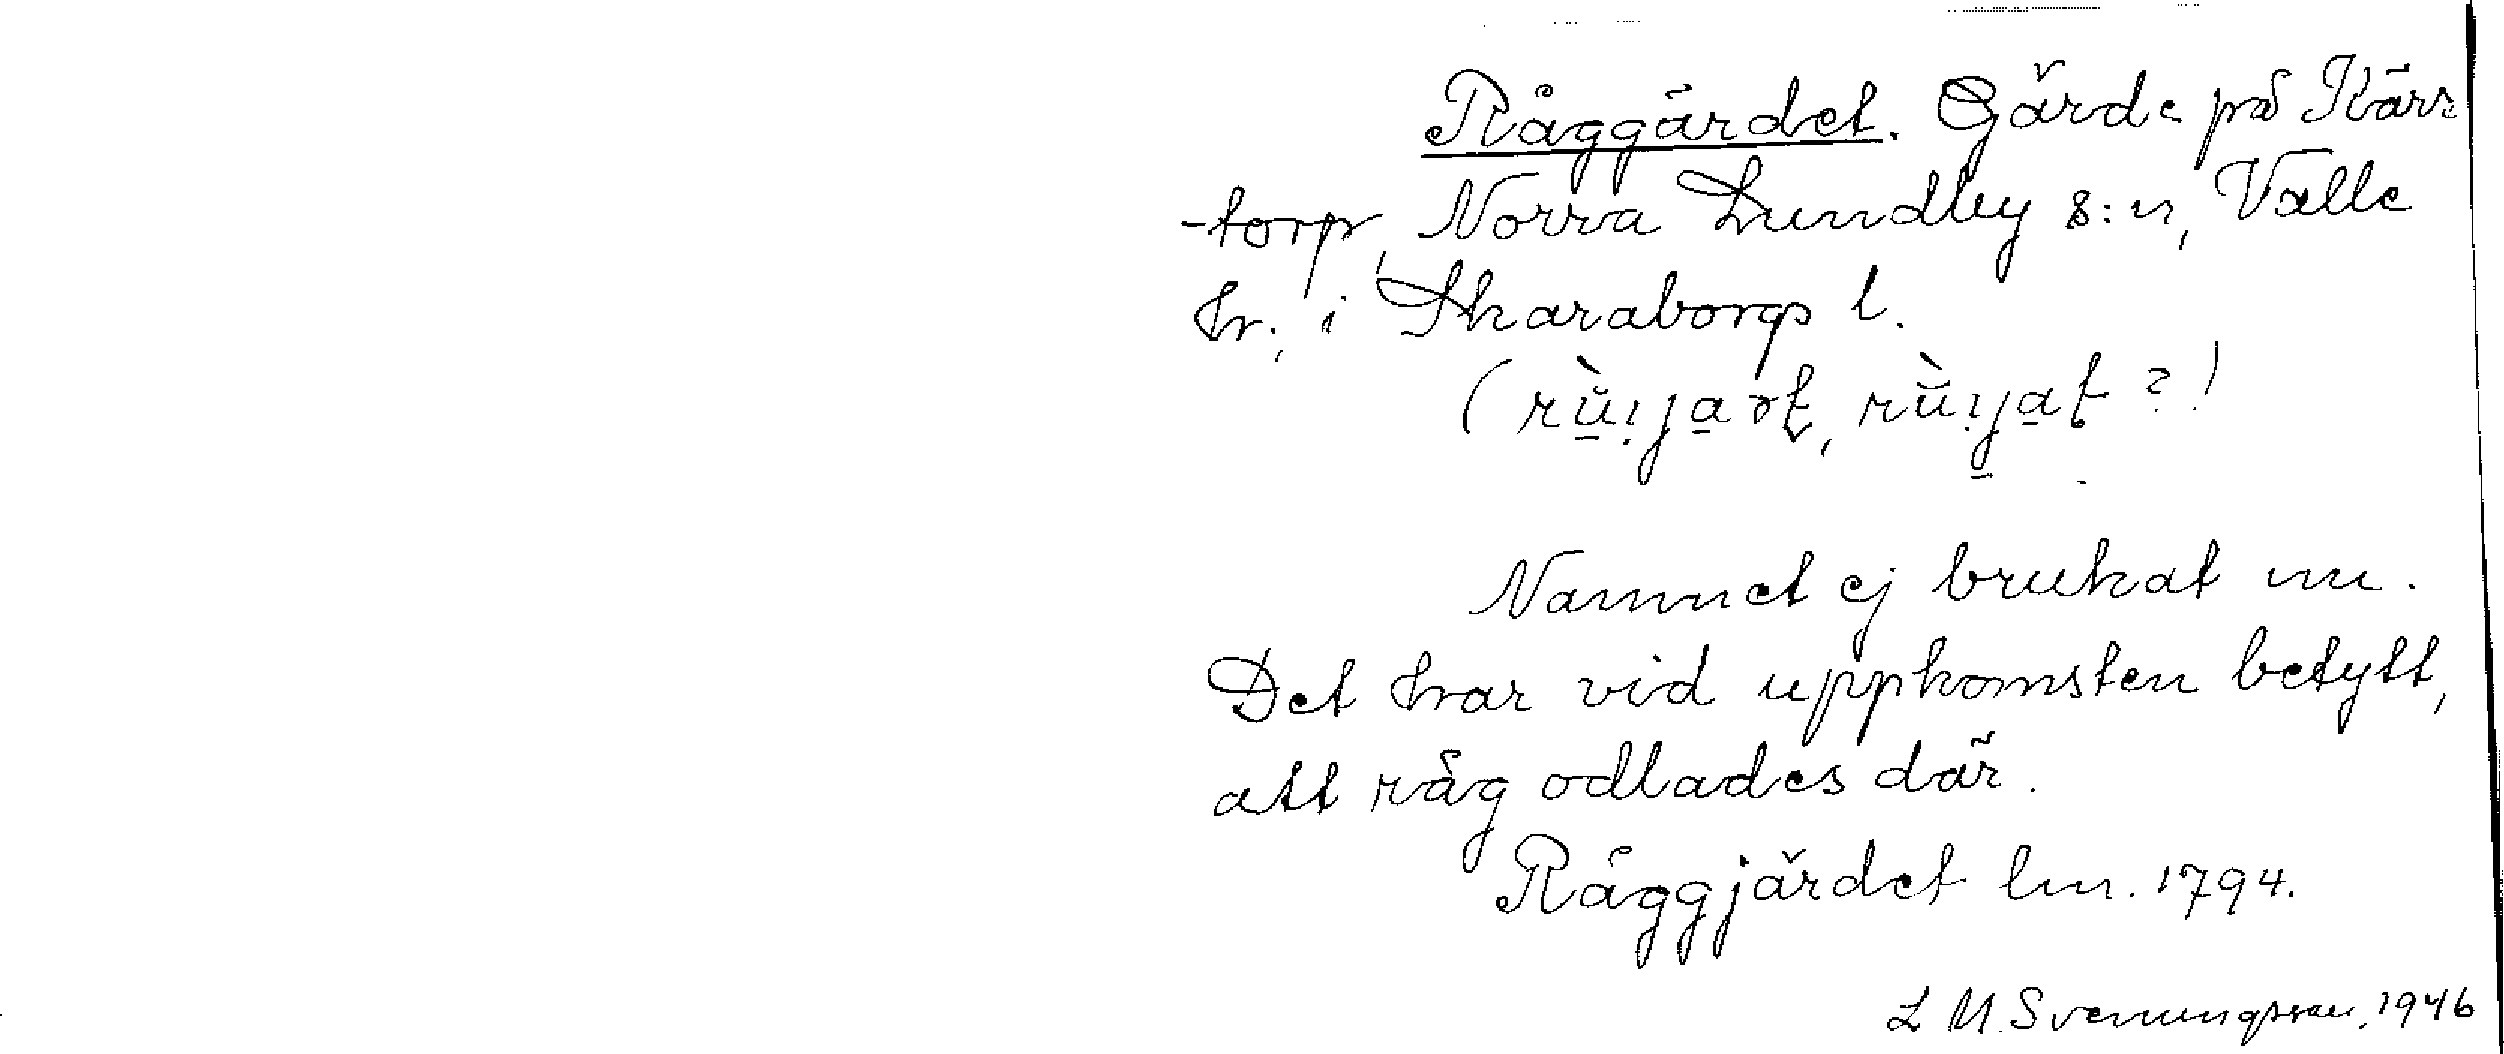 Råggärdet. Gärde på Kärr
-torp, Norra Lundby s:n, Valle
hr., i Skaraborgs l.
(rù̱.ja̱rt, rù.ja̱t ?)
Namnet ej brukat nu.
Det har vid uppkomsten betytt,
att råg odlades där.
Råggjärdet lm. 1794.
L M. Svenungsson, 1946